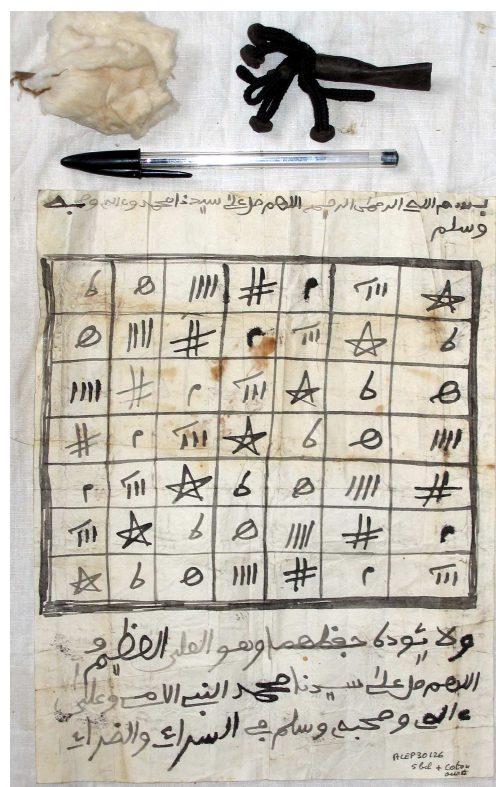 بسم الله الرحمن الرحيم اللهم صل على سيدنا محمد وءاله وصحبه
وسلم
ولا يئوده حفظهما وهو العلي العظيم
اللهم صل على سيدنا محمد النبي الامي وعلى
ءاله وصحبه وسلم في السراء والضراء
ALEP30126